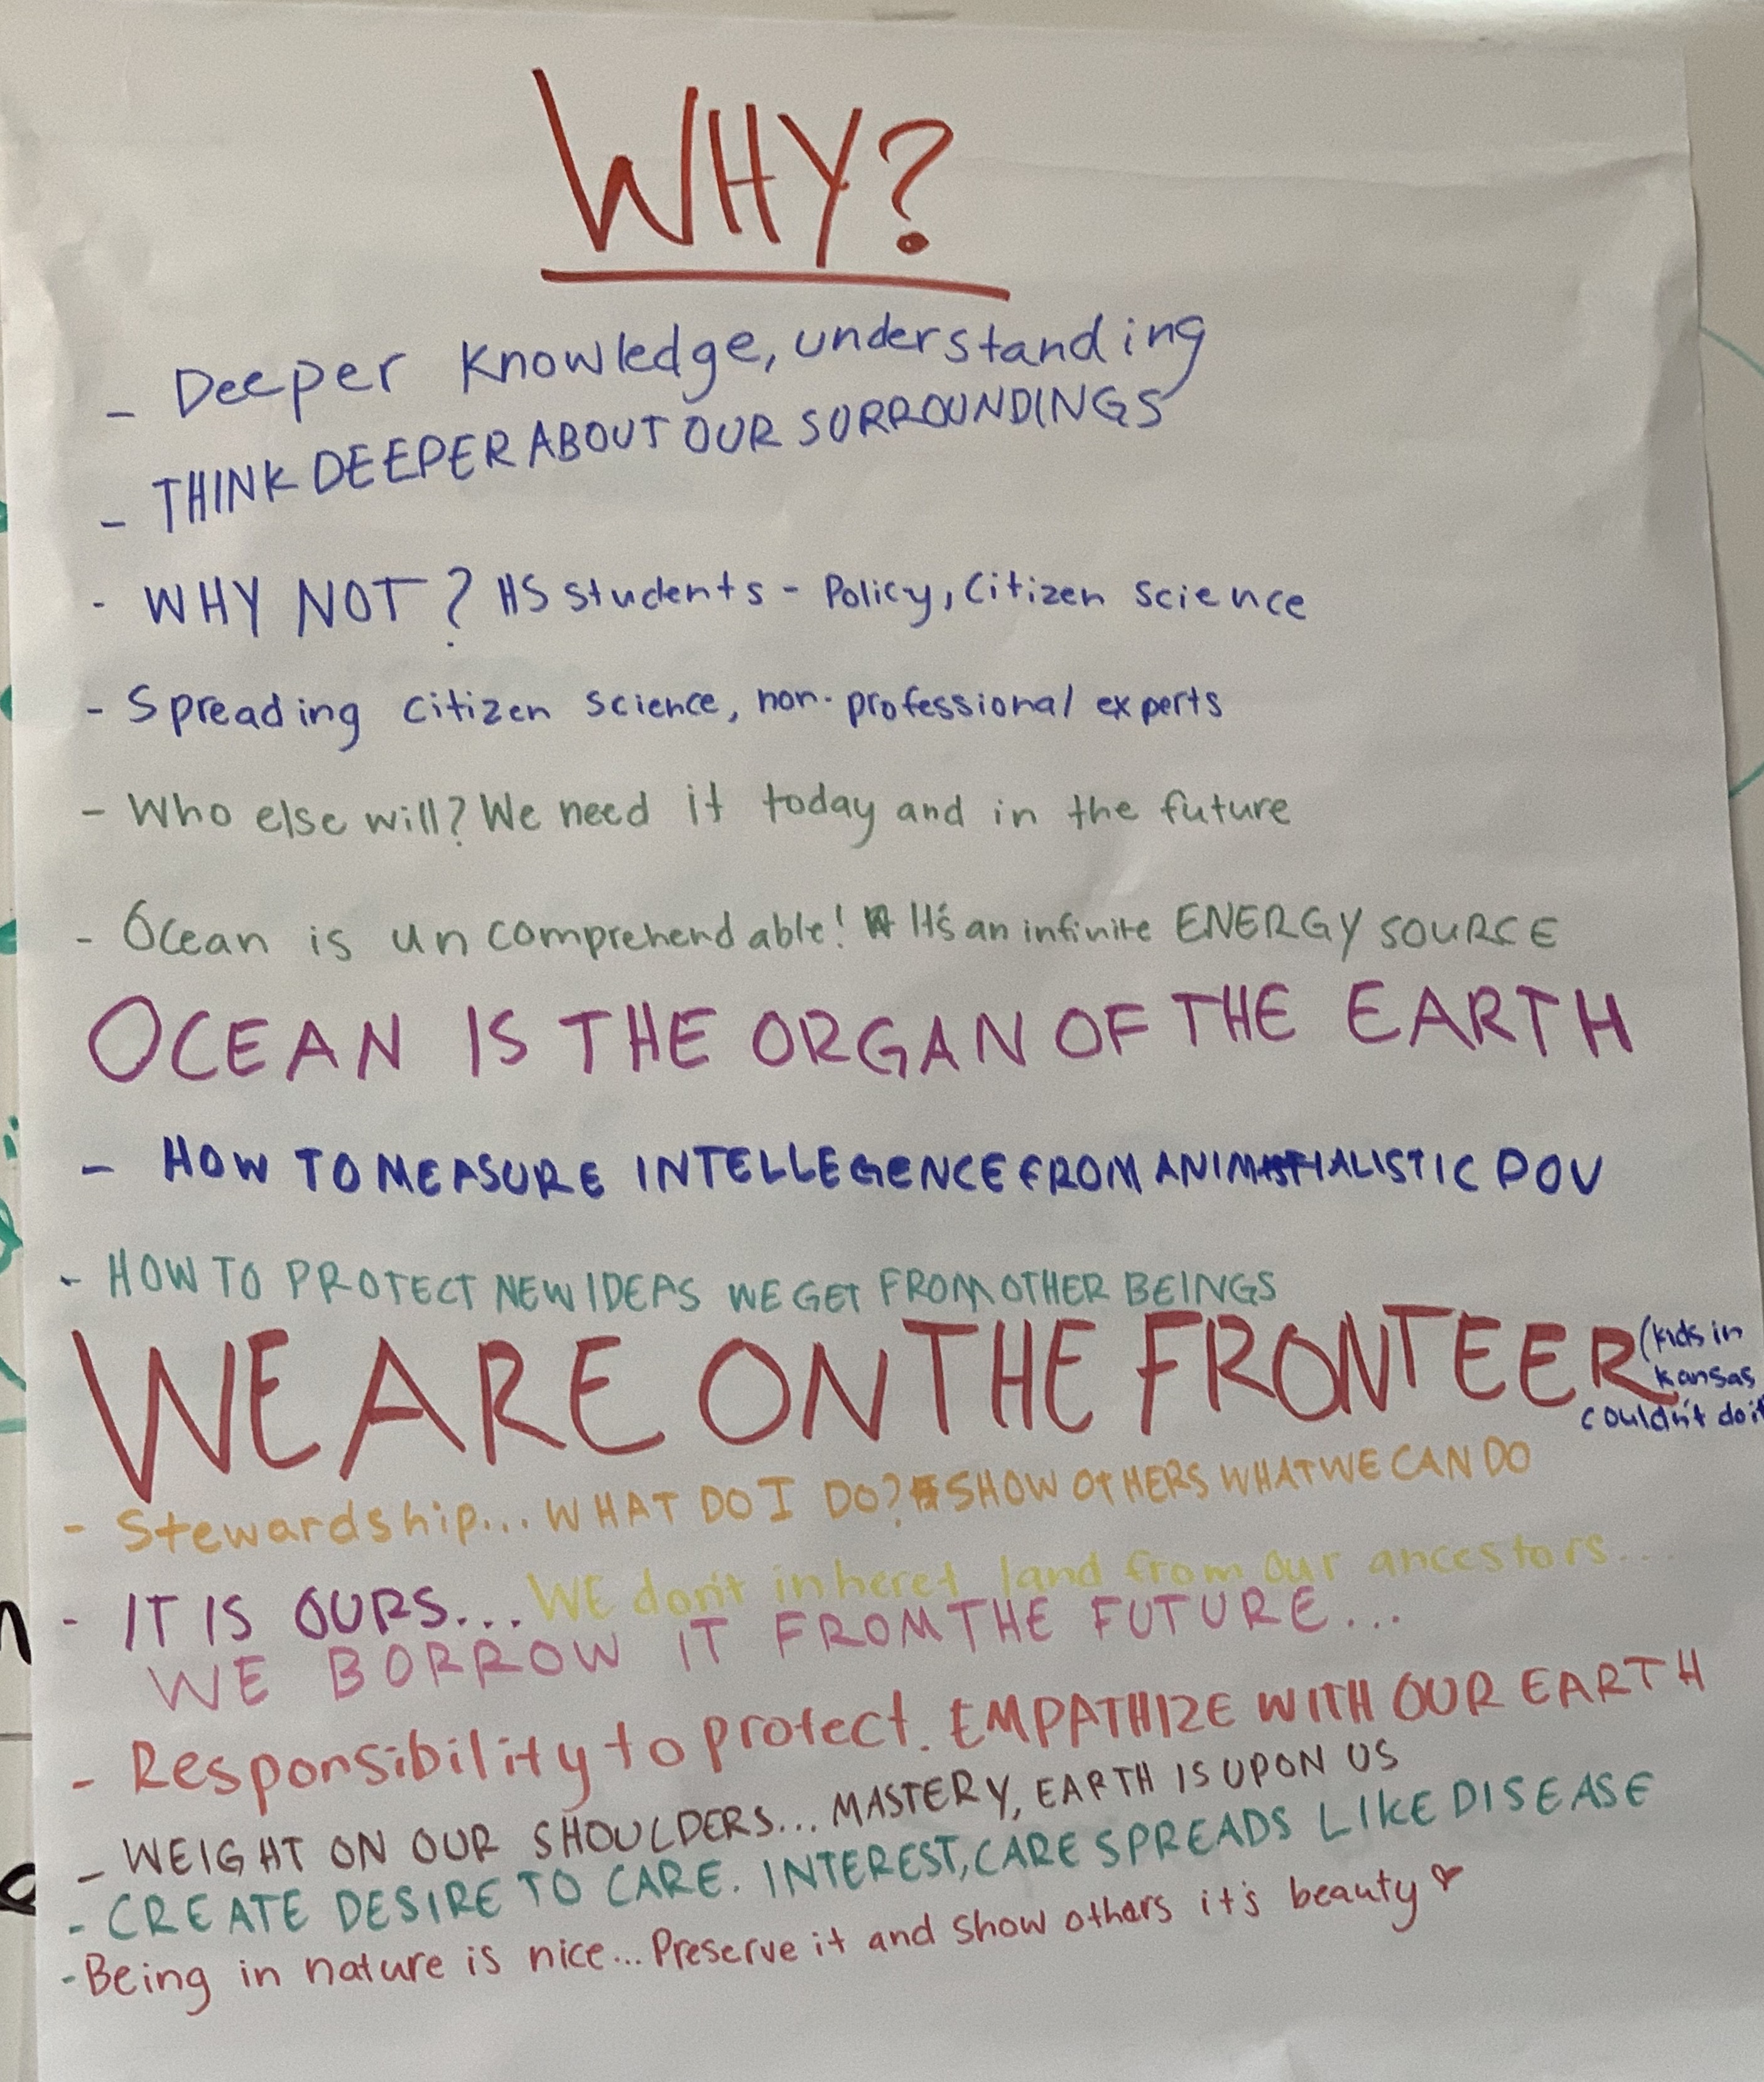 WHY?
- Deeper Knowledge, understanding
- THINK DEEPER ABOUT OUR SURROUNDINGS
- WHY NOT? HS students - Policy, Citizen Science
- Spreading citizen science, non-professional experts
- Who else will? We need it today and in the future
- Ocean is uncomprehendable! It's an infinite ENERGY SOURCE
OCEAN IS THE ORGAN OF THE EARTH
- HOW TO MEASURE INTELLEGENCE FROM ANIMALISTIC POV
- HOW TO PROTECT NEW IDEAS WE GET FROM OTHER BEINGS
WE ARE ON THE FRONTEER (kids in
kansas
couldn't do it
- Stewardship... WHAT DO I DO? SHOW OTHERS WHAT WE CAN DO
- IT IS OURS... WE don't inheret land from our ancestors...
WE BORROW IT FROM THE FUTURE...
- Responsibility to protect. EMPATHIZE WITH OUR EARTH
- WEIGHT ON OUR SHOULDERS... MASTERY, EARTH IS UPON US
- CREATE DESIRE TO CARE. INTEREST, CARE SPREADS LIKE DISEASE
- Being in nature is nice... Preserve it and show others it's beauty